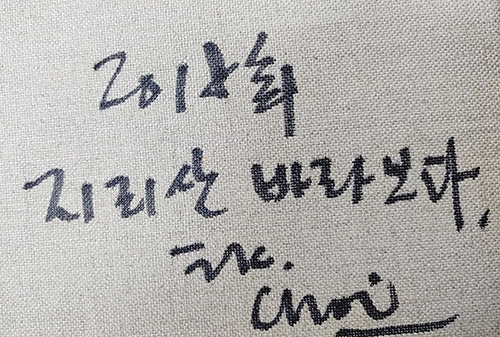 2018
지리산 바라보다,
Choi